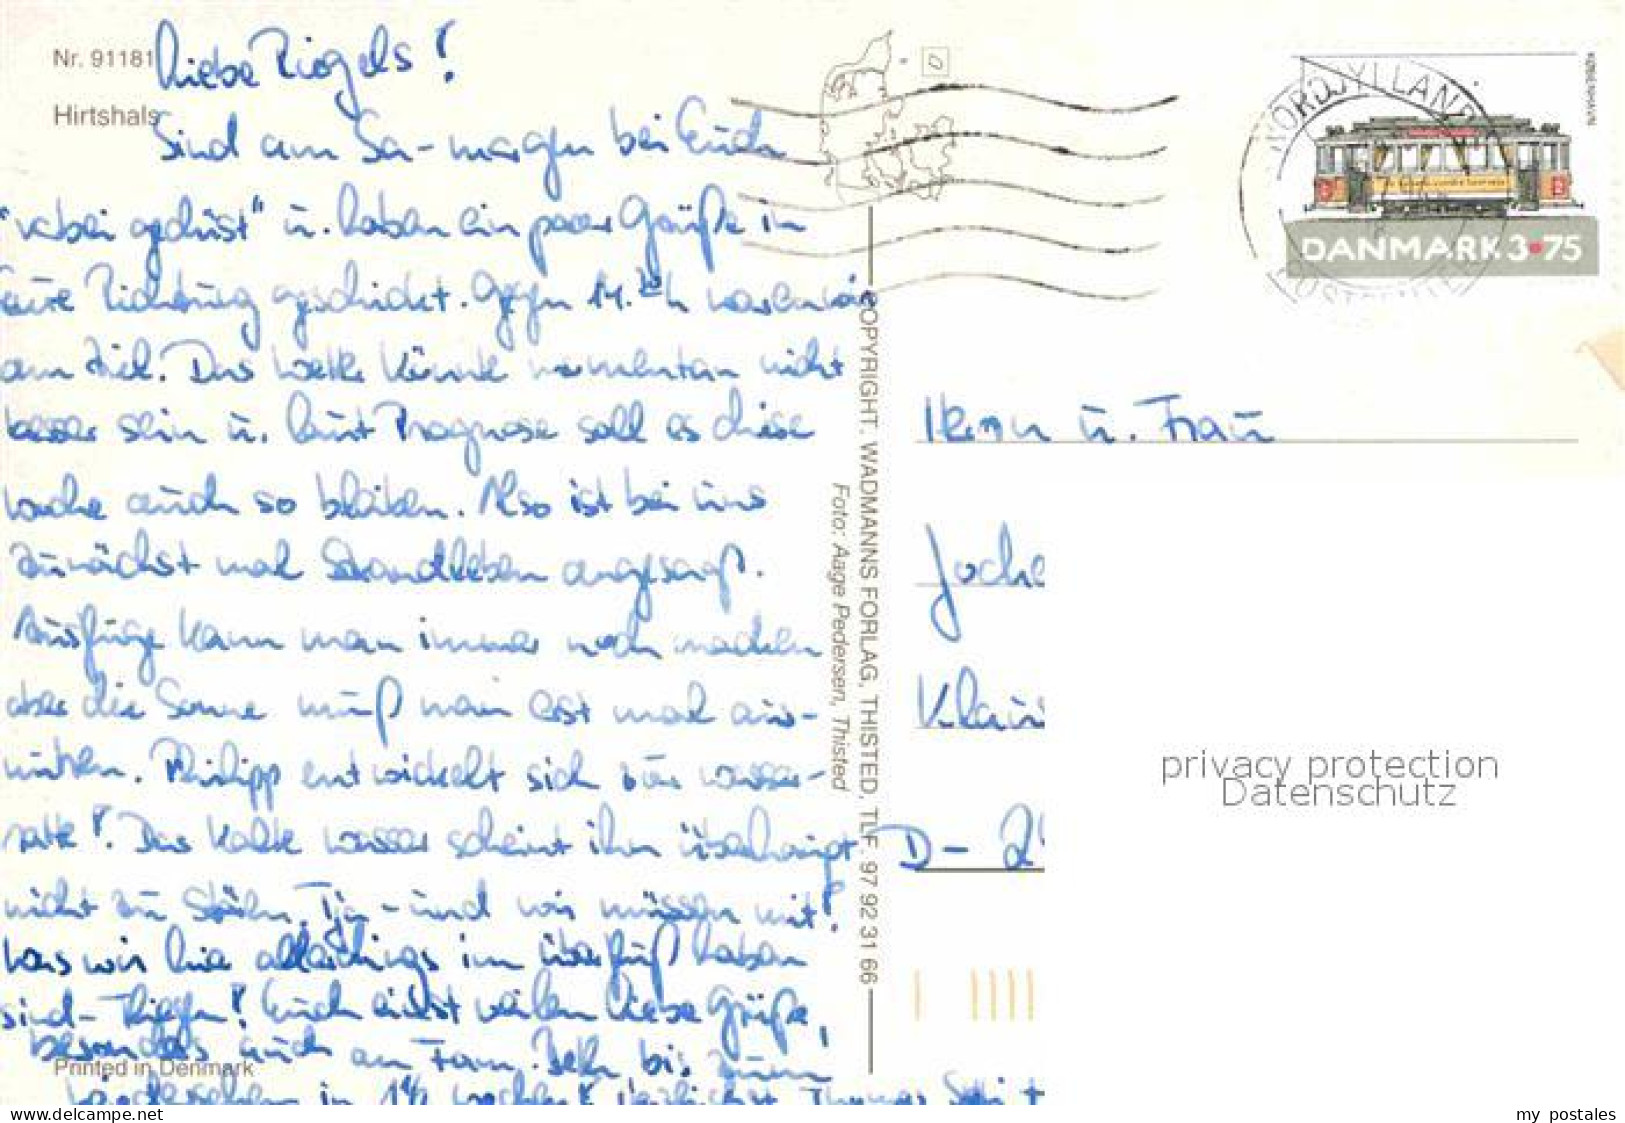 Nr. 91181
Hirtshals
Liebe Riegels!
Sind am Sa-morgen bei Euch
"vorbei gedüst" u. haben ein paar Grüße in
Eure Richtung geschickt. Gegen 14.00h waren wir
am Ziel. Das Wetter könnte momentan nicht
besser sein u. laut Prognose soll es diese
Woche auch so bleiben. Also ist bei uns
zunächst mal Strandleben angesagt.
Ausflüge kann man immer noch machen
aber die Sonne muß man erst mal aus-
nutzen. Philipp entwickelt sich zur Wasser-
ratte! Das kalte Wasser scheint ihn überhaupt
nicht zu stören. Tja - und wir müssen mit!
Was wir hier allerdings im Überfluß haben
sind - Fliegen! Euch erst weilen liebe Grüße,
besonders auch an Fam. bis zum
Wiedersehen in 1 1/2 Wochen! Thomas
Printed in Denmark
COPYRIGHT. WADMANNS FORLAG, THISTED, TLF. 97 92 31 66
Foto: Aage Pedersen, Thisted
NORDJYLLAND
POSTCENTER
KØBENHAVN
DANMARK 3•75
Herrn u. Frau
Joche
Klau
D-2
privacy protection
Datenschutz
www.delcampe.net
my_postales